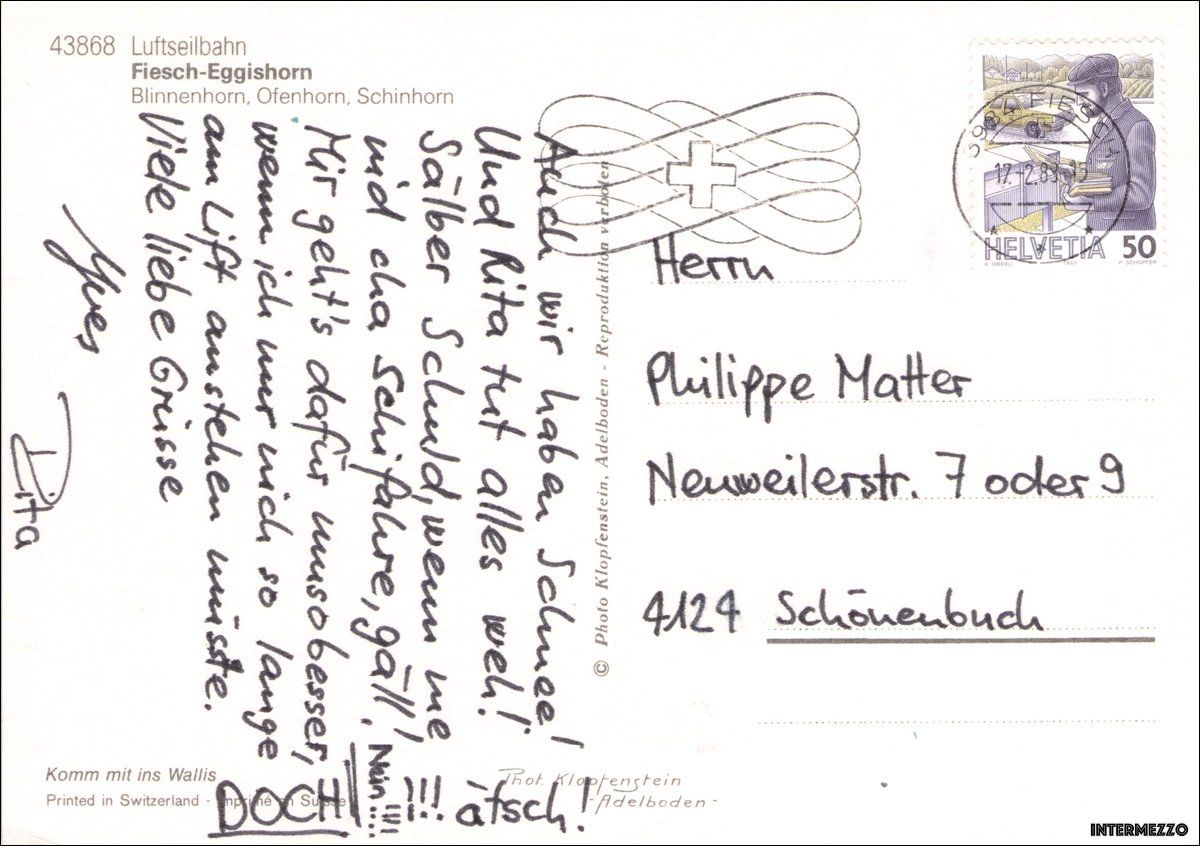 43868 Luftseilbahn
Fiesch-Eggishorn
Blinnenhorn, Ofenhorn, Schinhorn
Auch wir haben Schnee!
Und Rita tut alles weh!
Sälber Schuld, wenn me
nid cha Schifahre, gäll!
Mir geht's dafür umsobesser,
wenn ich nur nich so lange
am Lift anstehen müsste.
Viele liebe Grüsse
Yves
Rita
Nein!!!
DOCH
!!! ätsch!
Komm mit ins Wallis
Printed in Switzerland - Imprimé en Suisse
© Photo Klopfenstein, Adelboden - Reproduktion verboten
Phot. Klopfenstein
- Adelboden -
3984 FIESCH
17.-2.89
HELVETIA 50
K. OBERLI 1987 P. SCHOPFER
Herrn
Philippe Matter
Neuweilerstr. 7 oder 9
4124 Schönenbuch
INTERMEZZO